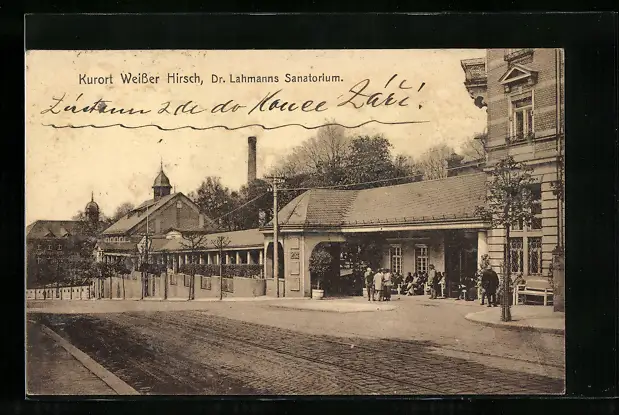 Kurort Weißer Hirsch, Dr. Lahmanns Sanatorium.
Zůstanu zde do konce Září!